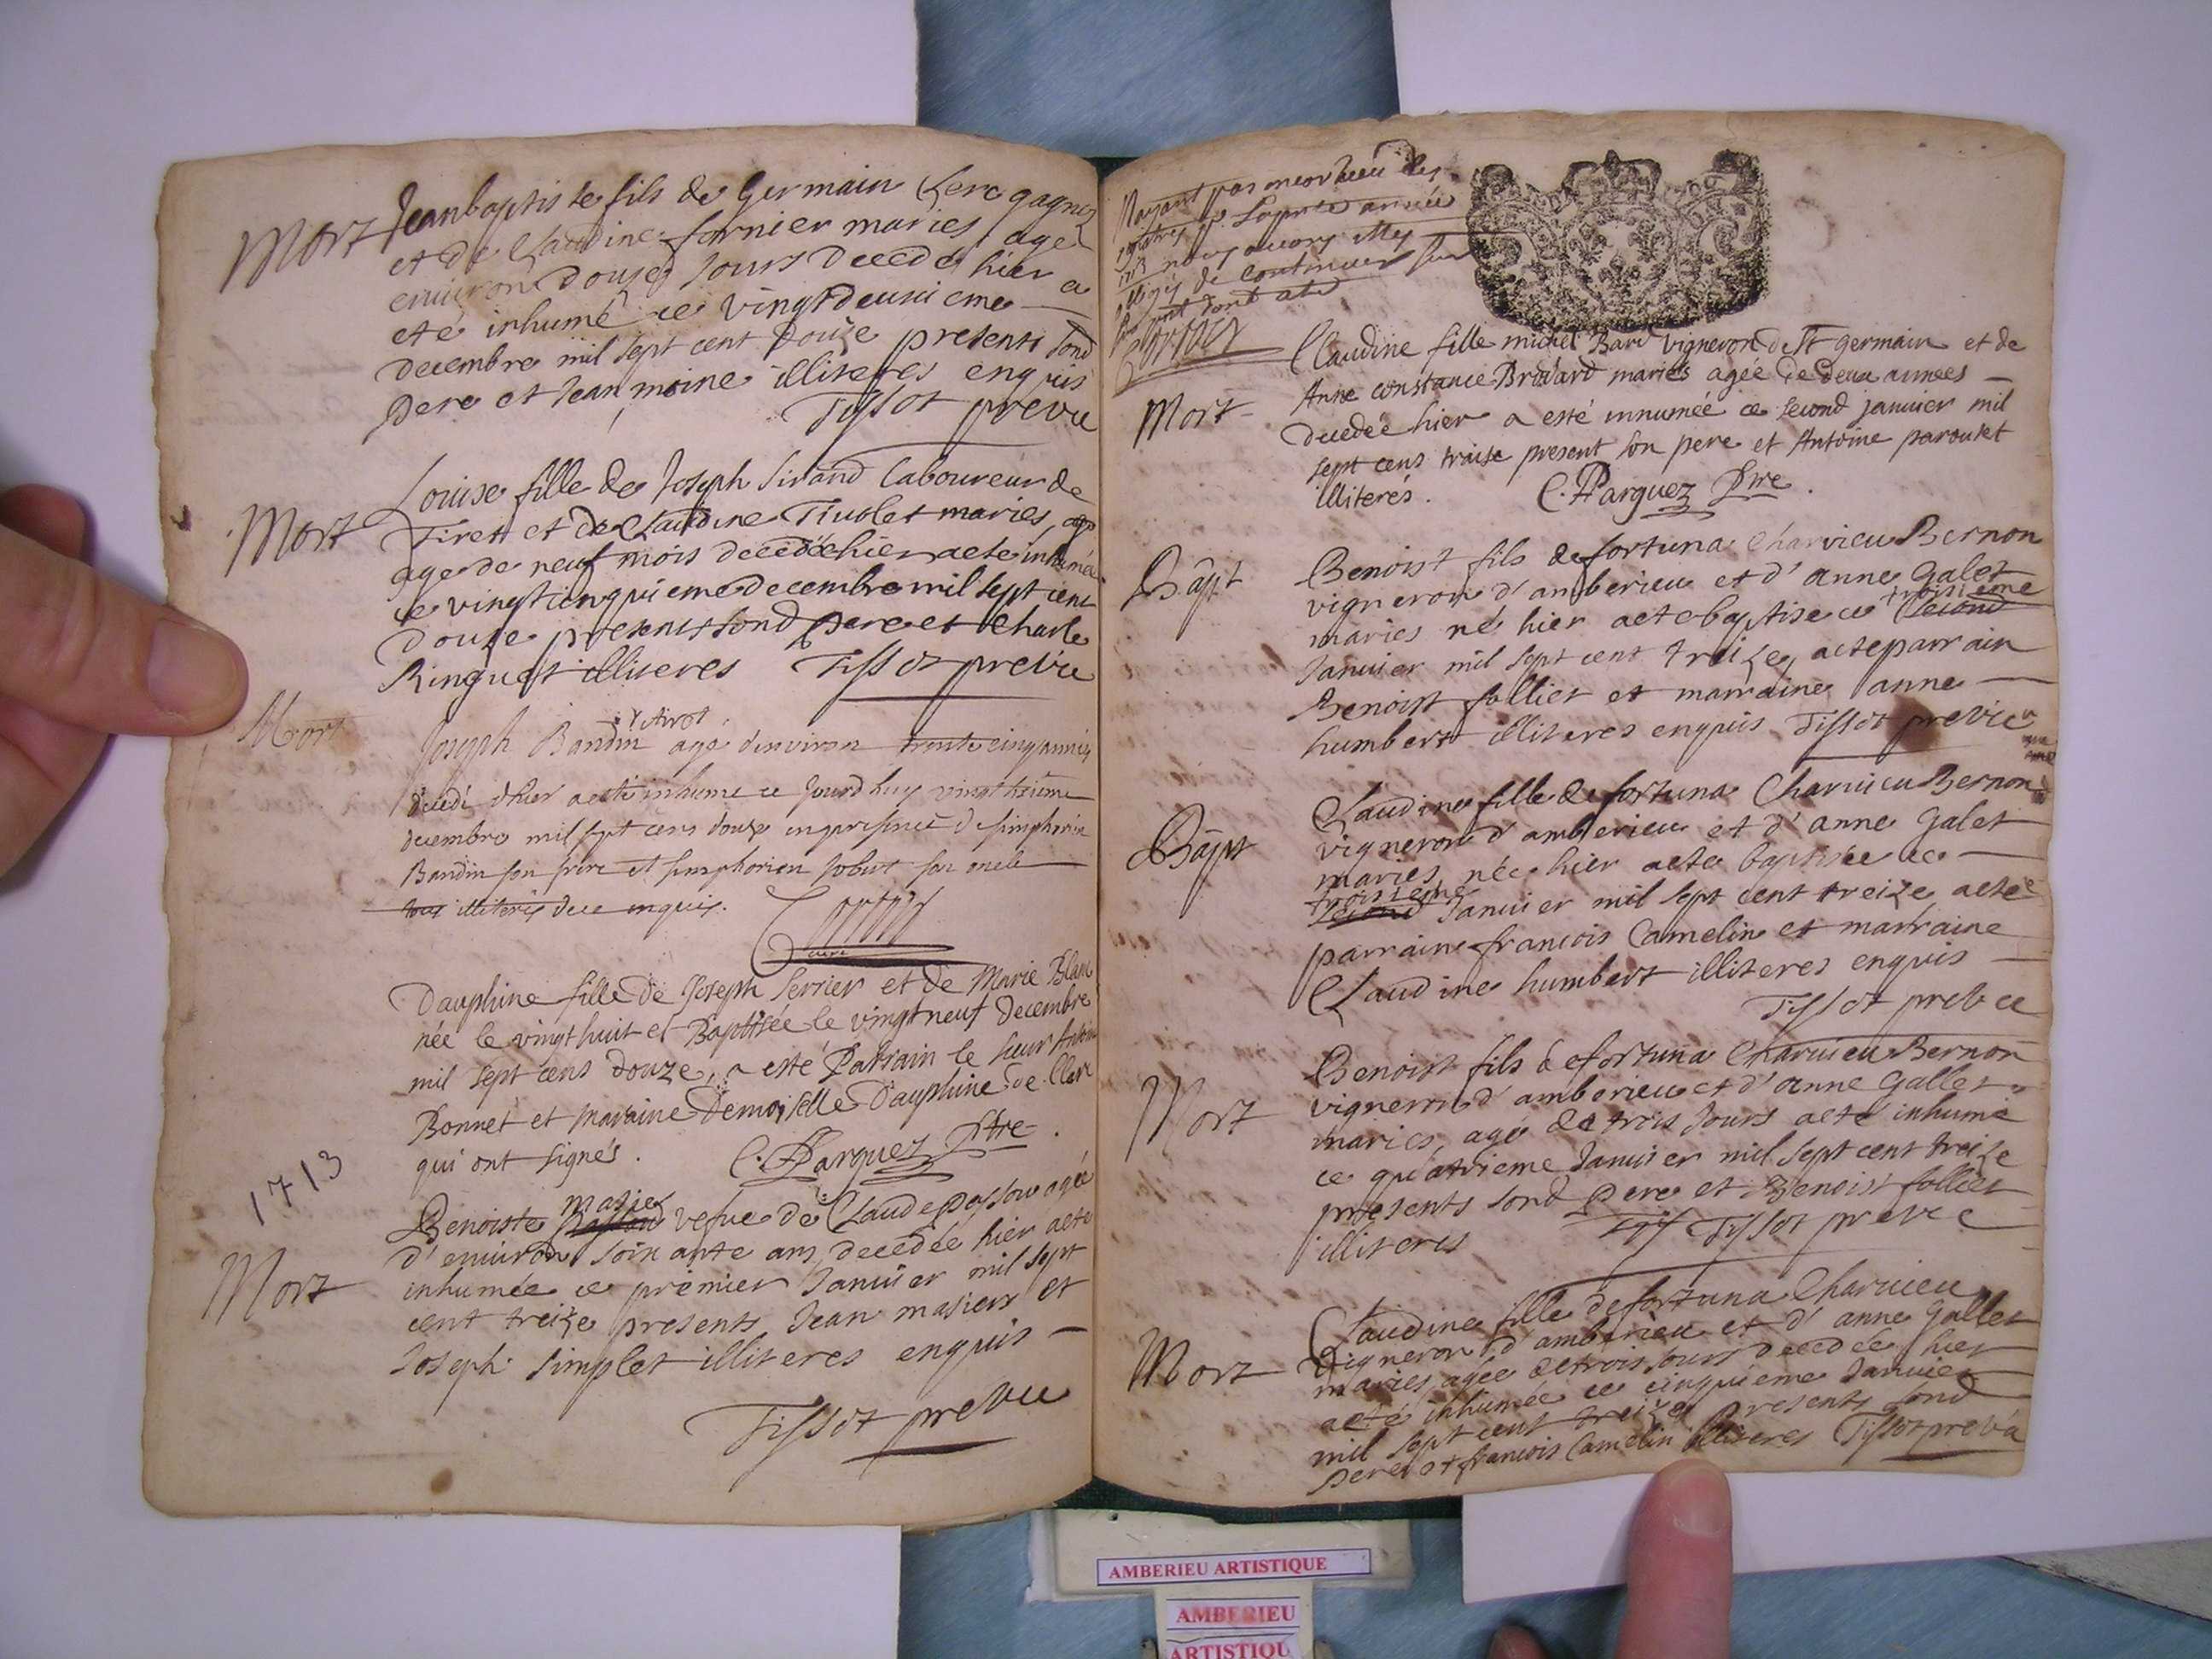 Mort Jeanbaptiste fils de Germain Clerc gagnez
et de Claudine fornier maries age
environ douze Jours decede hier a
eté inhumé ce vingtdeuxieme
decembre mil sept cent douze presents sond
pere et Jean moine illiteres enquis
Tissot prevre
Louise fille de Joseph Sirand Laboureur de
Mort Tirett et de Claudine Tivolet maries
age de neuf mois decedée hier aeté inhumé
ce vingtcinquieme decembre mil sept cent
douze presents sond pere et Charle
Ringuet illiteres Tissot prevre
Mort Joseph Bandin age denviron trente cinq années
decedé dhier aesté inhume ce Jourdhuy vingthuitieme
decembre mil sept cens douze en presence de simphorien
Bandin son frere et simphorien Jobert son oncle
tous illiteres de ce enquis.
Dauphine fille de Joseph Serrier et de Marie Blanc
née le vingt huit et Baptisée le vingtneuf decembre
mil sept cens douze, a esté Parrain le sieur
Bonnet et maraine Demoiselle Dauphine de Clerc
qui ont signés. C. Parguez Ptre.
1713
Benoiste masier vefue de Claude passou agée
d'environ soixante ans decedée hier aeté
Mort inhumée ce premier Janvier mil sept
cent treize presents Jean masiers et
Joseph simplet illiteres enquis
Tissot prevre
Nayant pas encor
1713 nous avons estes
obliges de continuer sur
Claudine fille michel Bard vigneron de St germain et de
Anne constance Brovard mariés agée de deux années
Mort decedée hier a esté innumée ce second janvier mil
sept cens traise present son pere et Antoine paroutet
illiterés. C. Parguez Ptre.
Benoist fils de fortuna Charvieu Bernon
Bapt vigneron d'amberieu et d'anne Galet
troisieme
maries né hier aeté baptise ce second
Janvier mil sept cent treize, aeté parrain
Benoist follier et marraine anne
humbert illiteres enquis Tissot prevre
Claudine fille de fortuna Charvieu Bernon
Bapt vigneron d'amberieu et d'anne Galet
maries née hier aeté baptisée ce
troisieme
second Janvier mil sept cent treize aeté
parrain francois Camelin et marraine
Claudine humbert illiteres enquis
Tissot prevre
Benoist fils de fortuna Charvieu Bernon
Mort vigneron d'amberieu et d'anne Gallet
maries, agé de trois Jours aeté inhumé
ce quatrieme Janvier mil sept cent treize
presents sond pere et Benoist follier
illiteres Tissot prevre
Claudine fille de fortuna Charvieu
Mort vigneron d'amberieu et d'anne Gallet
maries, agée detrois Jours decedée hier
aeté inhumée ce cinquieme Janvier
mil sept cent treize presents sond
pere et francois Camelin illiteres Tissot prevre
AMBERIEU ARTISTIQUE
AMBERIEU
ARTISTIQU